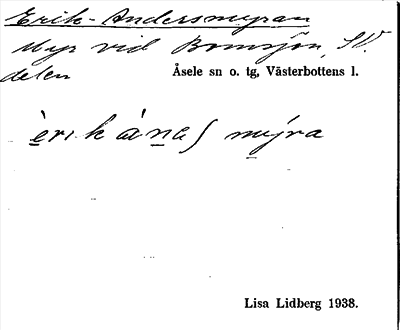 Erik-Andersmyran
Myr vid Bomsjön, SV.
delen
Åsele sn o. tg, Västerbottens l.
Lisa Lidberg 1938.